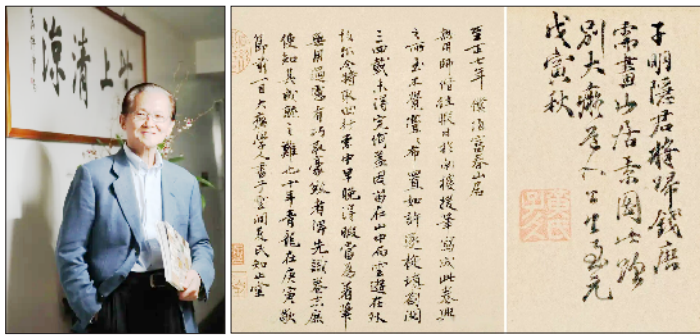 上清涼
至正七年 僕歸富春山居
無用師偕往暇日於南樓援筆寫成此卷興
之所至不覺亹亹布置如許逐旋填劄閱
三四載未得完備蓋因留在山中而雲遊在外
故爾今特取回行李中早晚得暇當為著筆
無用過慮有巧取豪敚者俾先識卷末庶
使知其成就之難也十年青龍在庚寅歜
節前一日大癡學人書于雲間夏氏知止堂
子明隱君將歸錢唐
需畫山居景圖此贈
別大癡道人公望至元
戊寅秋
黃氏子久